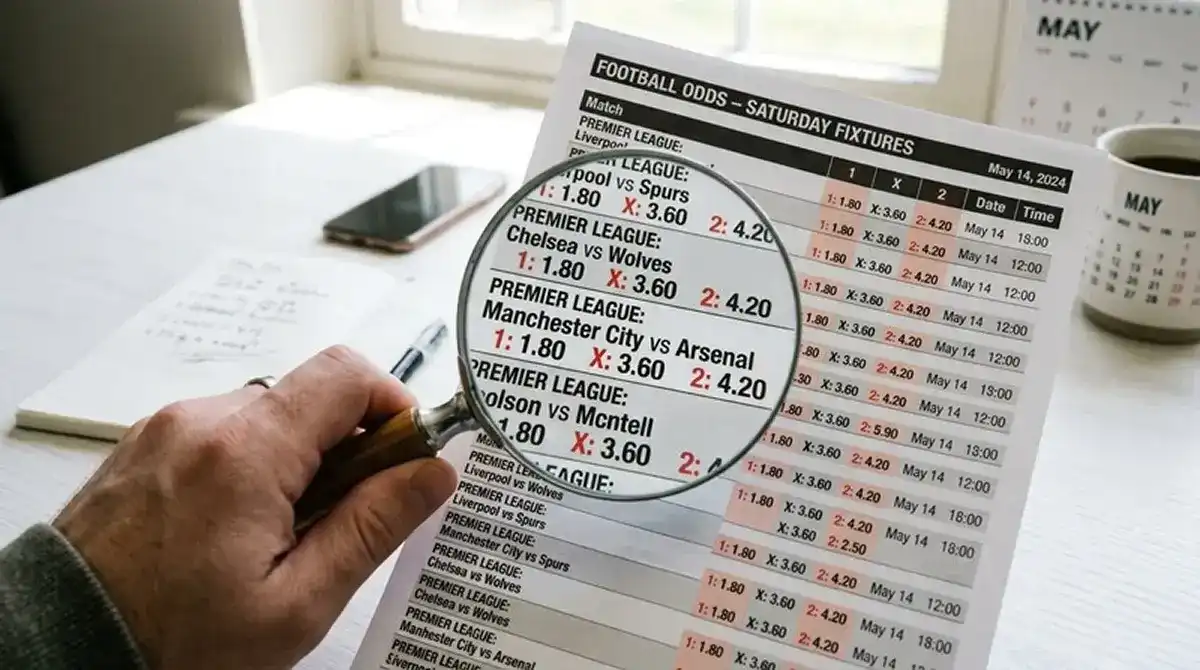 MAY
FOOTBALL ODDS – SATURDAY FIXTURES
May 14, 2024
Match 1 X 2 Date Time
PREMIER LEAGUE:
Liverpool
1: 1.80 X: 3.60 2: 4.20 May 14 18:00
1.80 X: 3.60 2: 4.20 May 14 12:00
1: 1.80 X: 3.60 2: 4.20 May 14 12:00
1: 1.80 X: 3.60 2: 4.20 May 14 12:00
1.80 X: 3.60 2: 4.20 May 14 12:00
.80 X: 3.60 2: 4.20 May 14 13:00
-30 X: 3.60 2: 4.20 May 14 12:00
1.80 X: 3.60 2: 5.90 May 14 13:00
1.80 X: 3.60 2: 4.20 May 14 12:00
1: 1.80 X: 3.60 2: 4.20 May 14 18:00
1: 1.80 X: 3.60 2: 4.20 May 14 18:00
X: 3.60 2: 2.50
1: 1.80 X: 3.60 2: 4.20 May 14 12:00
1: 1.80 X: 3.60 2: 4.20 May 14 18:00
1: 1.80 X: 3.60 2: 4.20 May 14
1: 1.80 X: 3.60
LEAGUE:
rpool vs Spurs
1: 1.80 X: 3.60 2: 4.20
PREMIER LEAGUE:
Chelsea vs Wolves
1: 1.80 X: 3.60 2: 4.20
PREMIER LEAGUE:
Manchester City vs Arsenal
1: 1.80 X: 3.60 2: 4.20
PREMIER LEAGUE:
olson vs Mcntell
1.80 X: 3.60 2:
EAGUE:
PREMIER LEAGUE:
Liverpool vs Wolves
PREMIER LEAGUE:
Liverpool vs Spurs
PREMIER LEAGUE:
Manchester City vs Spurs
PREMIER LEAGUE:
Chelsea vs Wolves
PREMIER LEAGUE:
Chelsea vs Wolves
PREMIER LEAGUE:
Manhester City vs Arsenal
PREMIER LEAGUE:
MAY